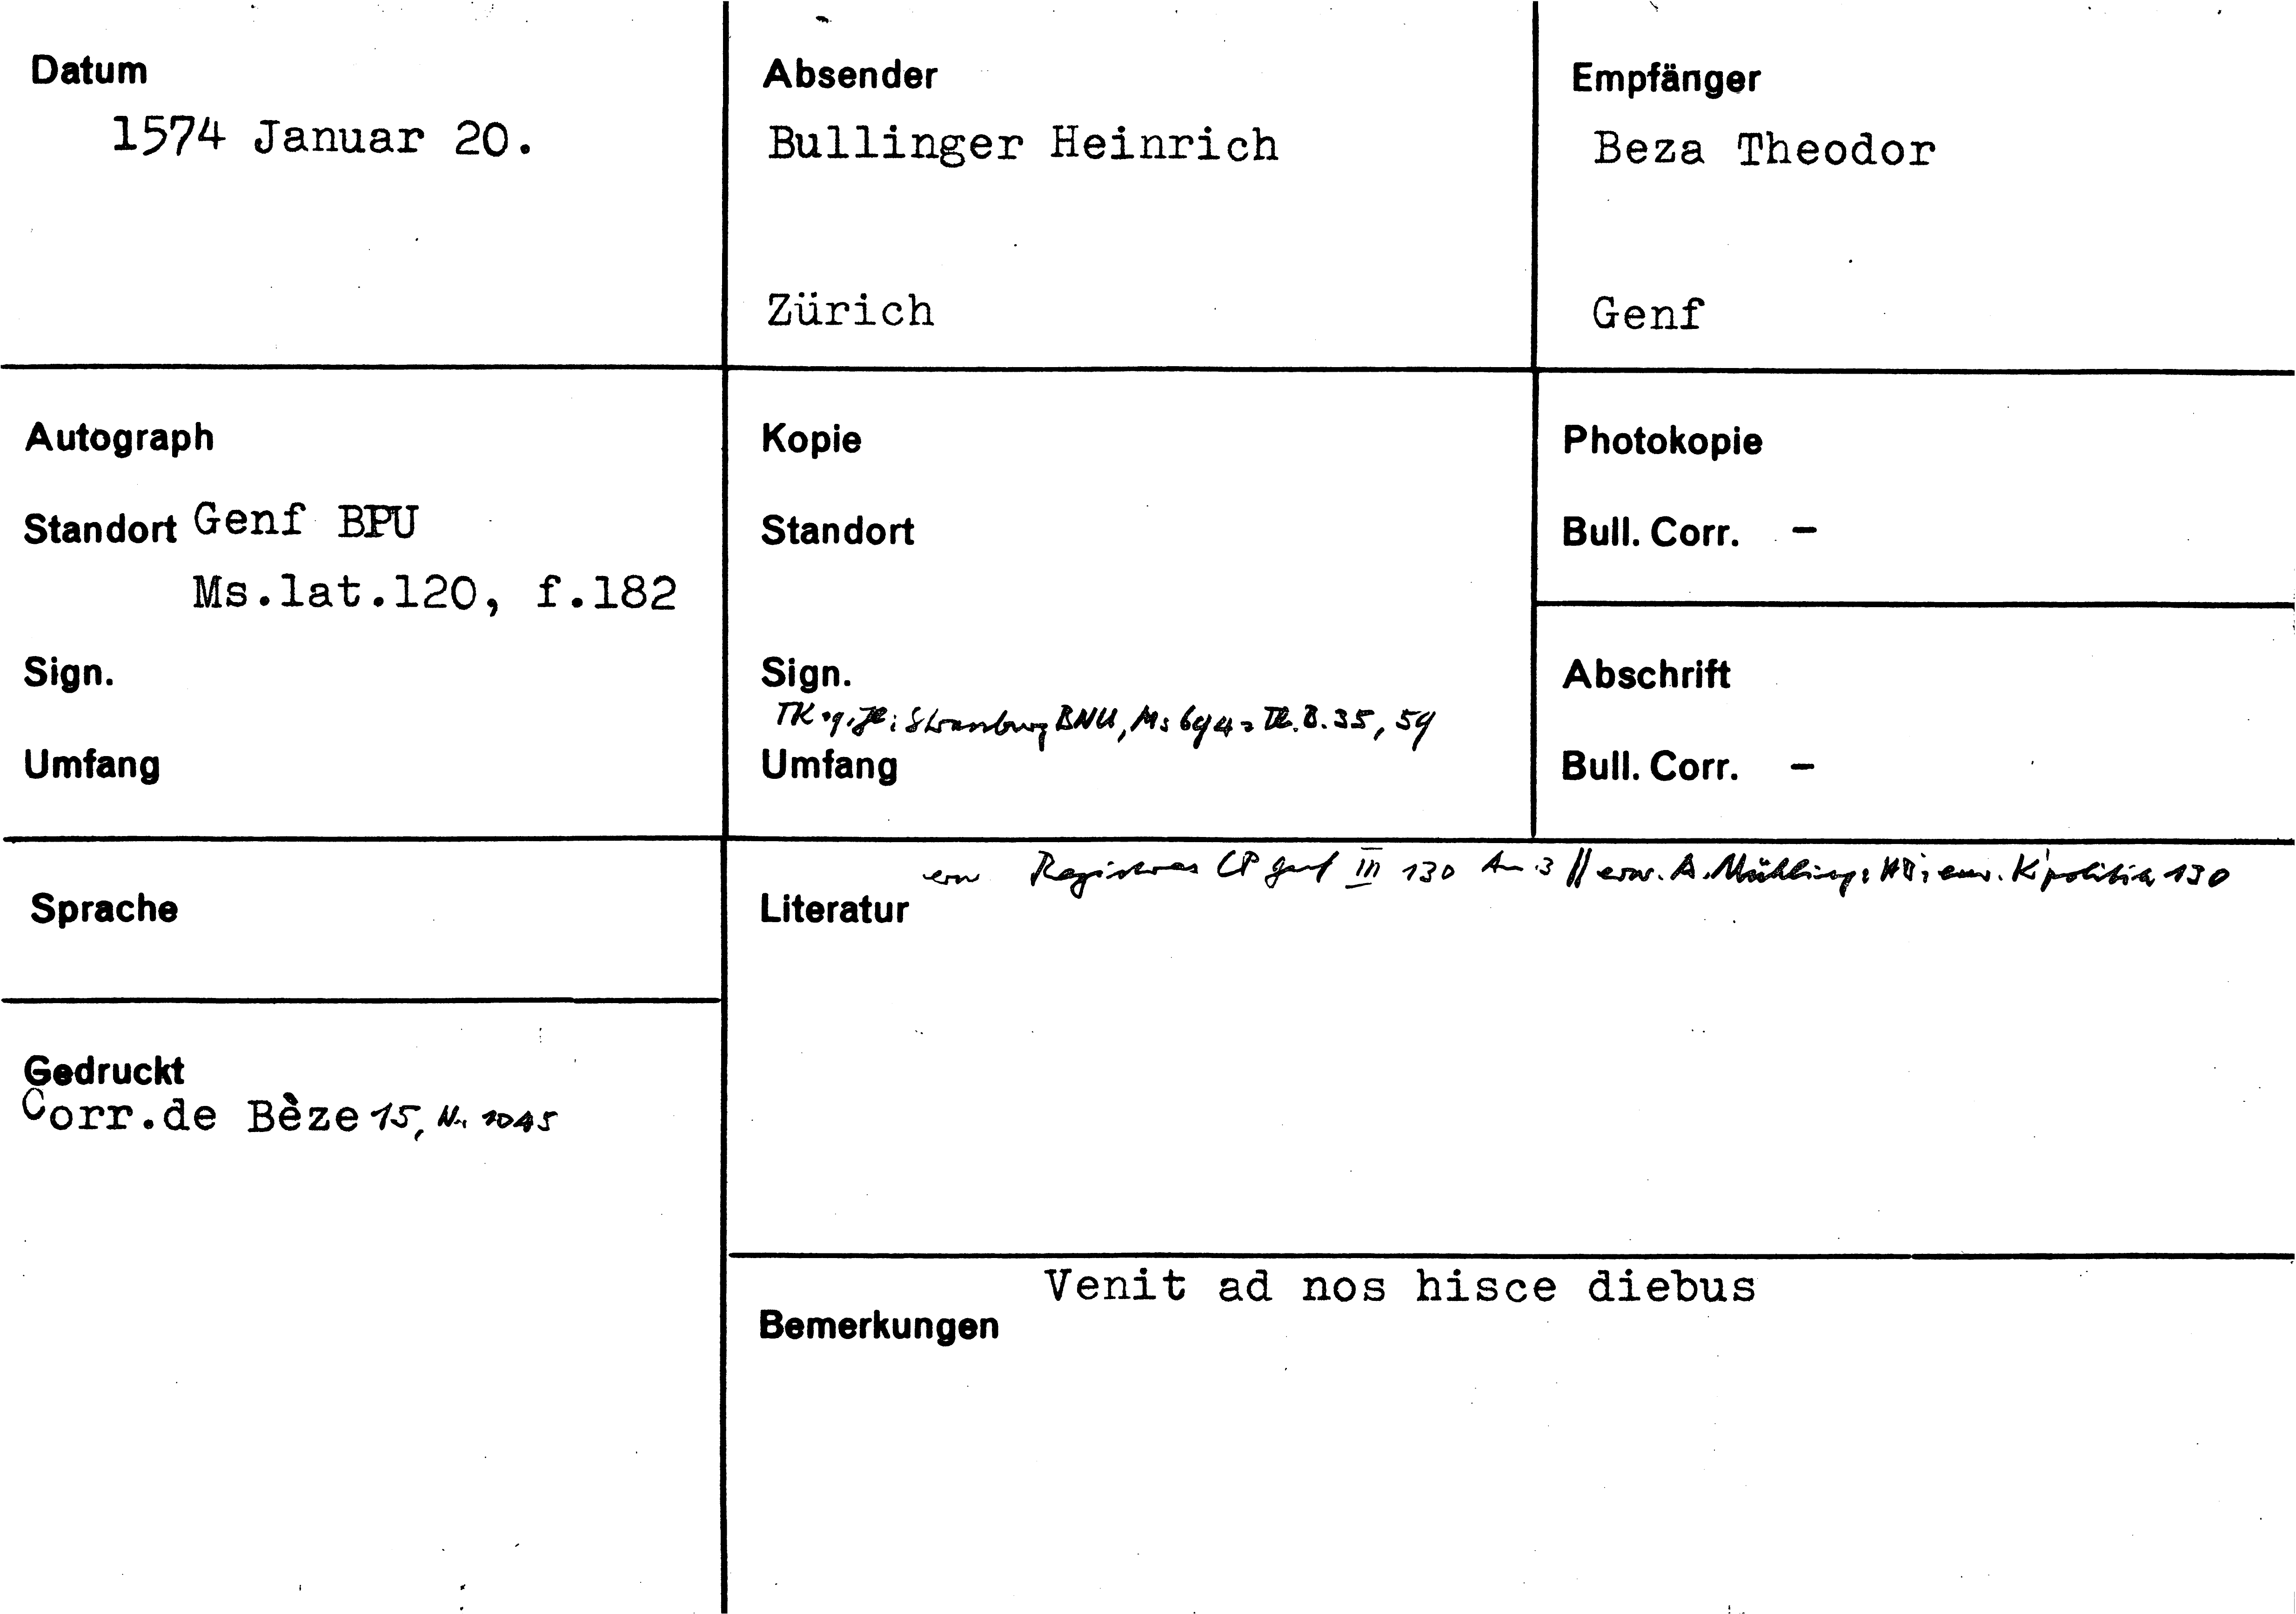 Datum
1574 Januar 20.
Absender
Bullinger Heinrich
Zürich
Empfänger
Beza Theodor
Genf
Autograph
Standort Genf BPU
Ms.lat.120, f.182
Sign.
Umfang
Kopie
Standort
Sign.
Strassburg BNU, Ms 694 = 35, 59
Umfang
Photokopie
Bull. Corr. -
Abschrift
Bull. Corr. -
Sprache
Gedruckt
Corr.de Bèze 15, Nr. 1045
Registres CP Genf III 130 // erw. A. Mühling: HB; eur. K'politik 130
Literatur
Venit ad nos hisce diebus
Bemerkungen